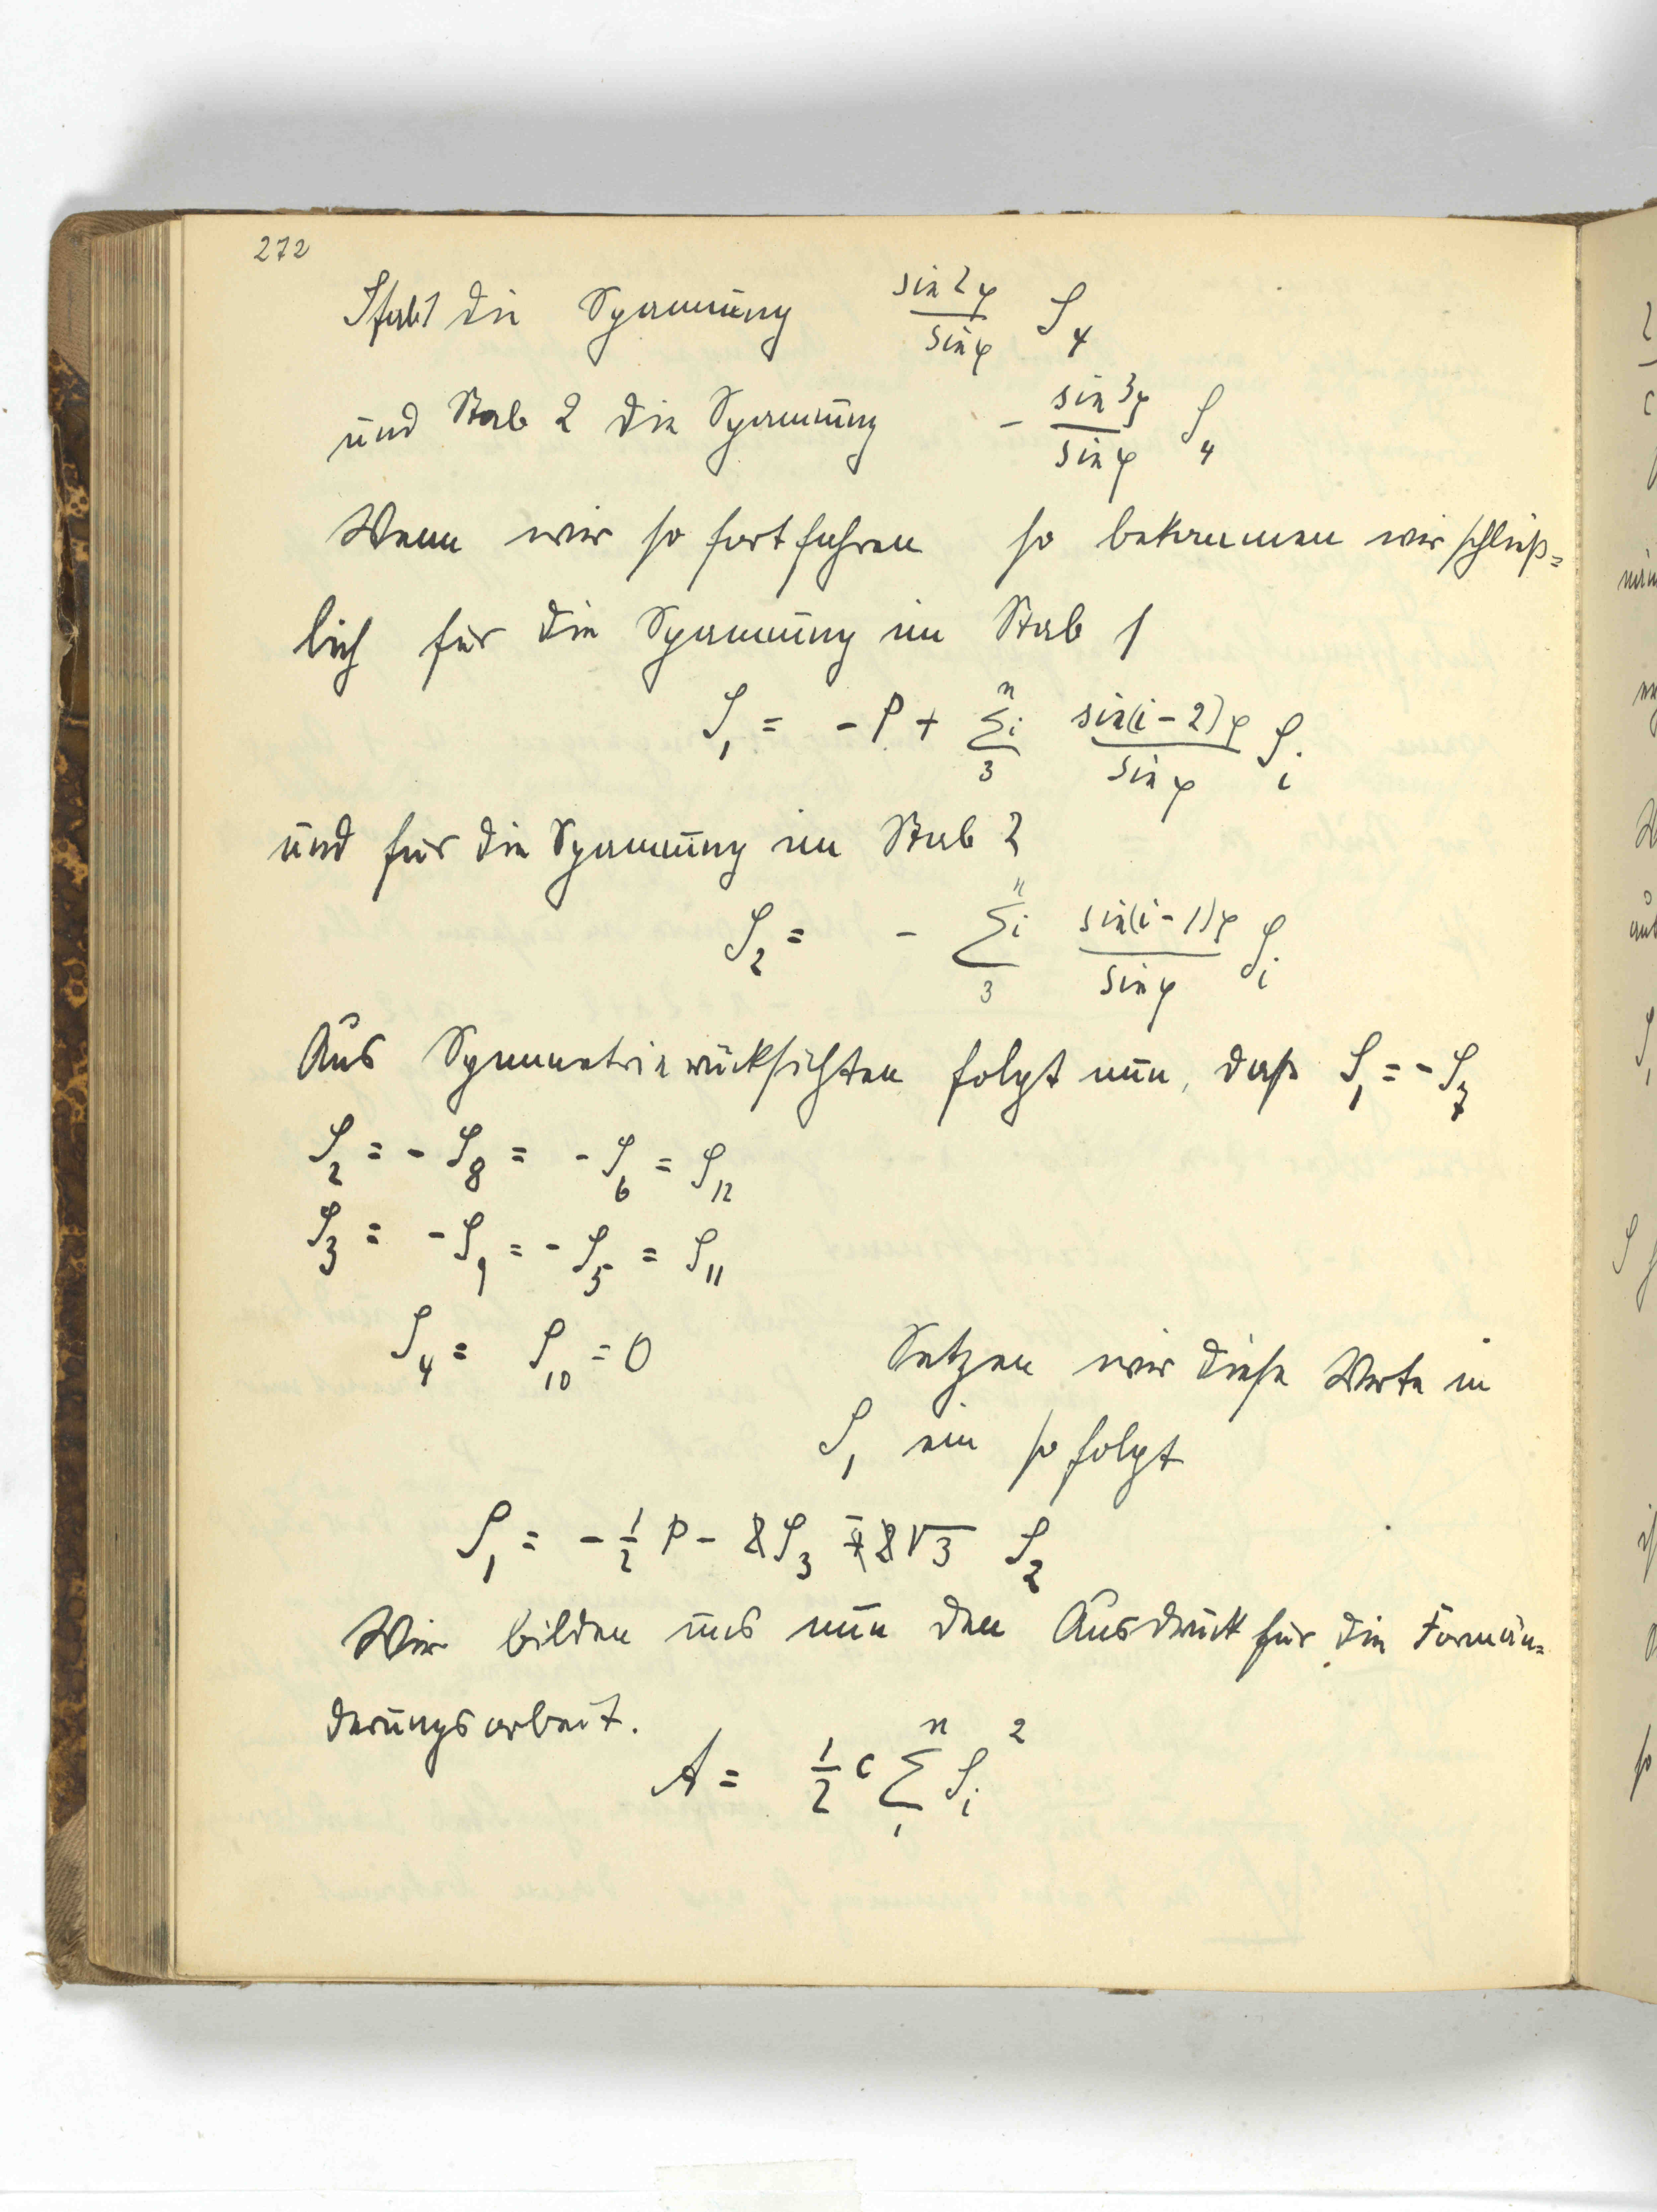 272
Stab 1 die Spannung sin2φ/sinφ S₄
und Stab 2 die Spannung - sin3φ/sinφ S₄
Wenn wir so fortfahren so bekommen wir schließ=
lich für die Spannung im Stab 1
S₁ = - P + Σᵢ₃ⁿ sin(i-2)φ/sinφ Sᵢ
und für die Spannung im Stab 2
S₂ = - Σᵢ₃ⁿ sin(i-1)φ/sinφ Sᵢ
Aus Symmetrierücksichten folgt nun, daß S₁ = - S₇
S₂ = - S₈ = - S₆ = S₁₂
S₃ = - S₉ = - S₅ = S₁₁
S₄ = S₁₀ = 0 Setzen wir diese Werte in
S₁ ein so folgt
S₁ = - 1/2 P - S₃ - √3 S₂
Wir bilden uns nun den Ausdruck für die Formän=
derungsarbeit.
A = 1/2 c Σ₁ⁿ Sᵢ²